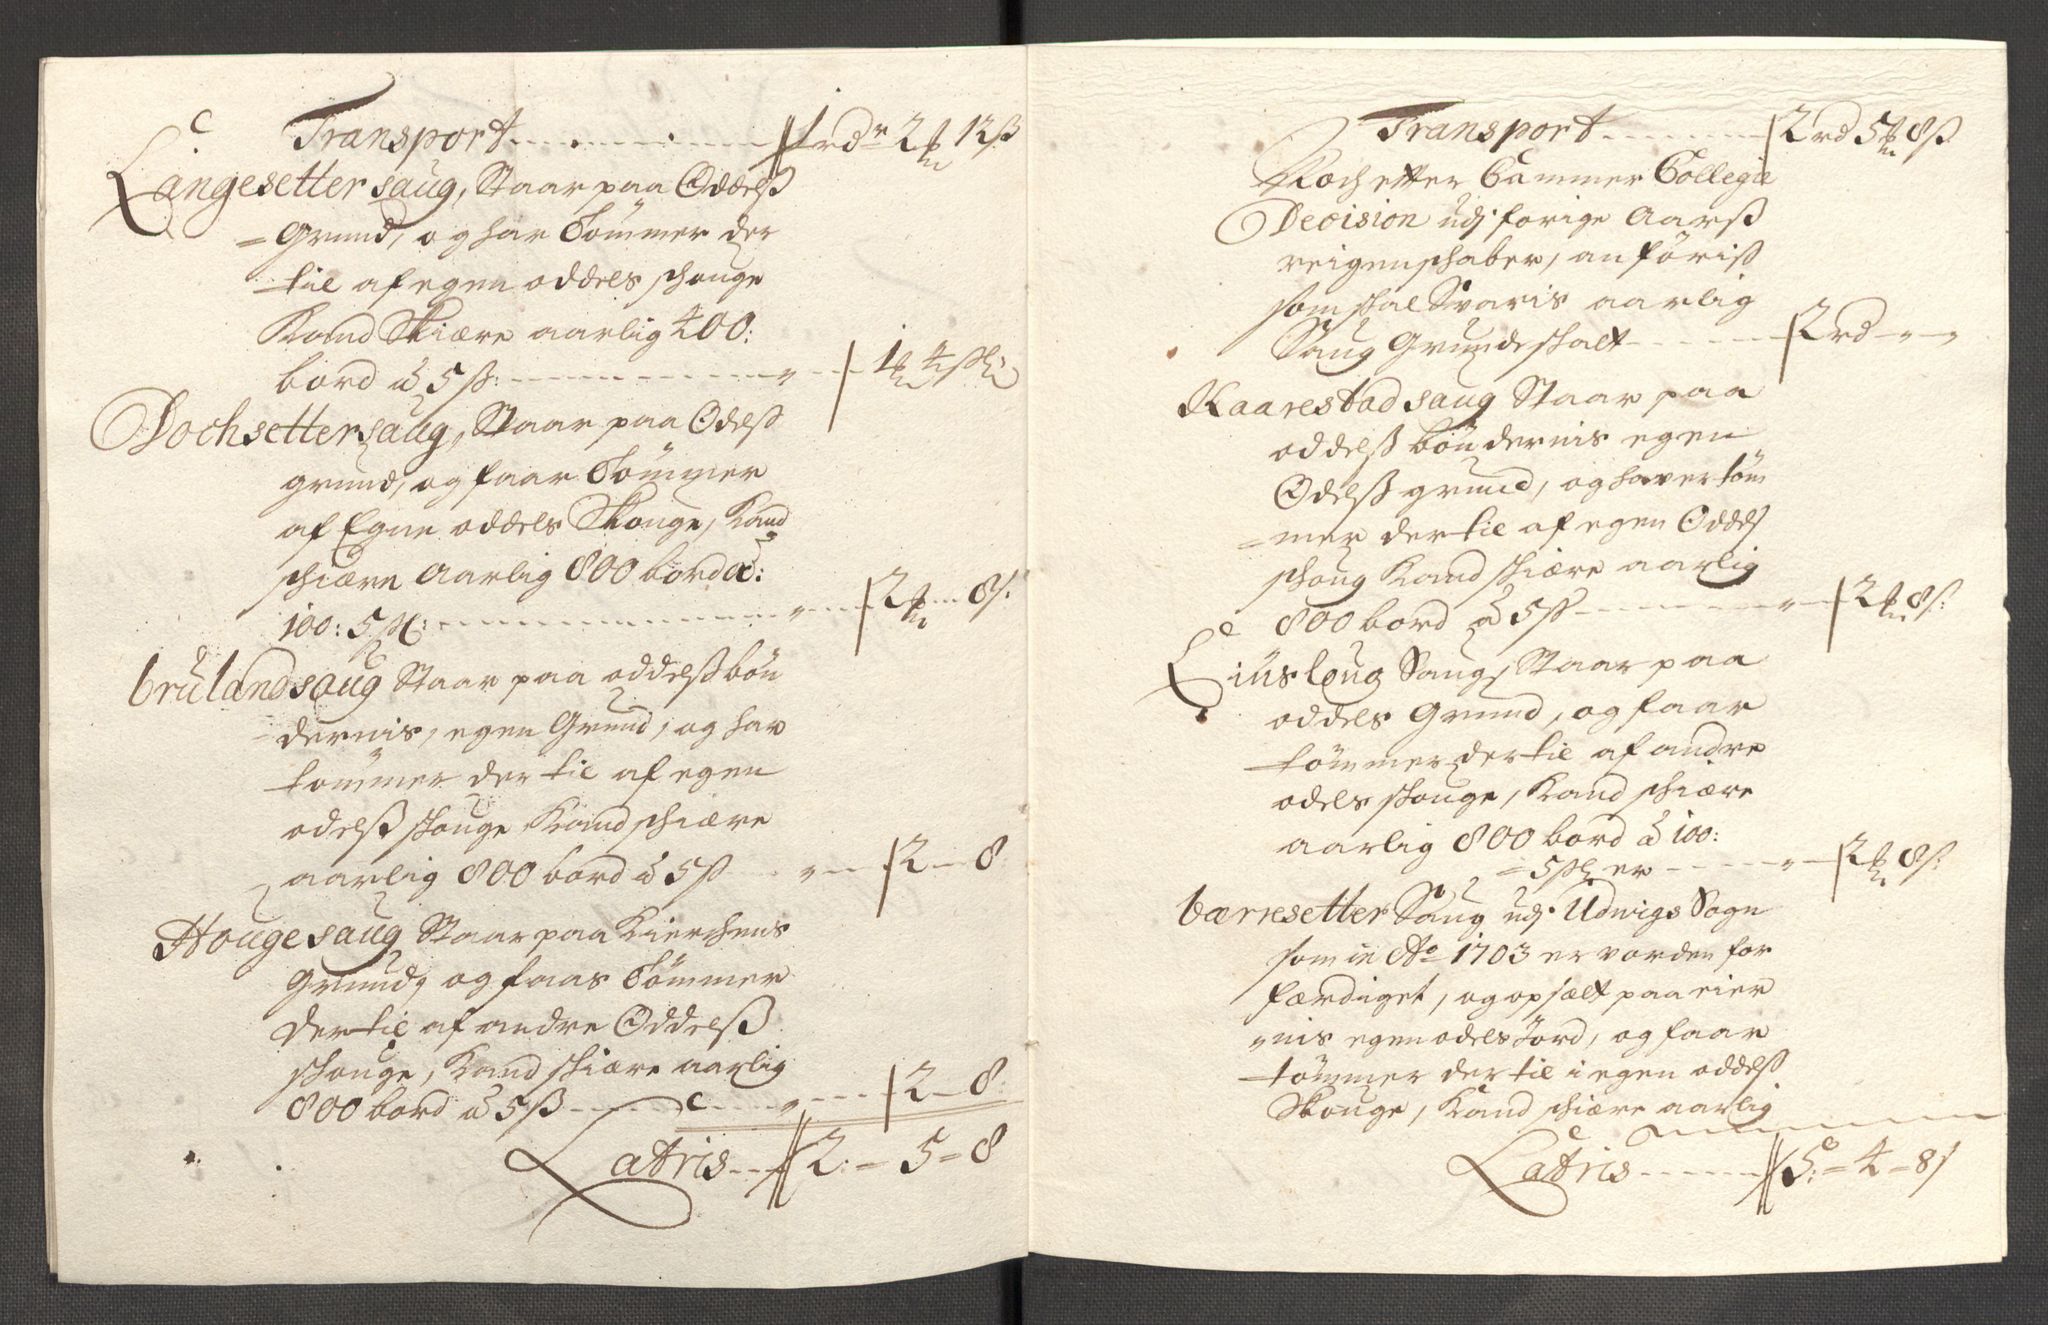 Transport ..... 1 rdr 2 12 ß
Langesetter saug, Staar paa Oddelß
= Grund, og har Tømmer der
til af egen oddels schouge
Kand Skiære aarlig 400:
bord à 5 ß: ----- " --- 1 4 ß
Dochsetter saug, Staar paa Odelß
grund, og faar Tømmer
af Egne oddels Skouge, Kand
schiære Aarlig 800 bord à:
100: 5 ß: ----- " --- 2 -- 8 ß.
brulandsaug Staar paa oddelß bøn
= dernis, egen Grund, og har
tømmer der til af egen
odelß schouge Kand schiære
aarlig 800 bord à 5 ß --- " -- 2 -- 8
Hougesaug Staar paa Kierchens
Grund, og faar Tømmer
der til af andre Oddelß
schouge, Kand schiære aarlig
800 bord à 5 ß ----- " --- 2 - 8:
Latris --- 2: = 5 = 8
Transport ..... 2 rd 5 8 ß.
Noch etter Cammer Collegie
Decision udj forige Aarß
reigenschaber, anføriß
som skal Svaris aarlig
Saug Grundeskalt ------ 2 rd - " - "
Kaarestad saug Staar paa
oddelß bøndernis egen
Odelß grund, og haver tøm
= mer der til af egen Oddelß
schoug Kand schiære aarlig
800 bord à 5 ß ------ " --- 2 8 ß:
Saug, Staar paa
oddels Grund, og faar
tømmer der til af andre
odels schouge, Kand schiære
aarlig 800 bord à 100:
= 5 ß er ----- " -- 2 8 ß:
bærresetter Saug udj Udvigs Sogn
som in Ao 1703 er vorden for
færdiget, og opsælt paa eier
= nis egen odels Jord, og faar
tømmer der til i egen oddelß
Skouge, Kand schiære aarlig
Latris ------ 5: = 4 = 8 ß